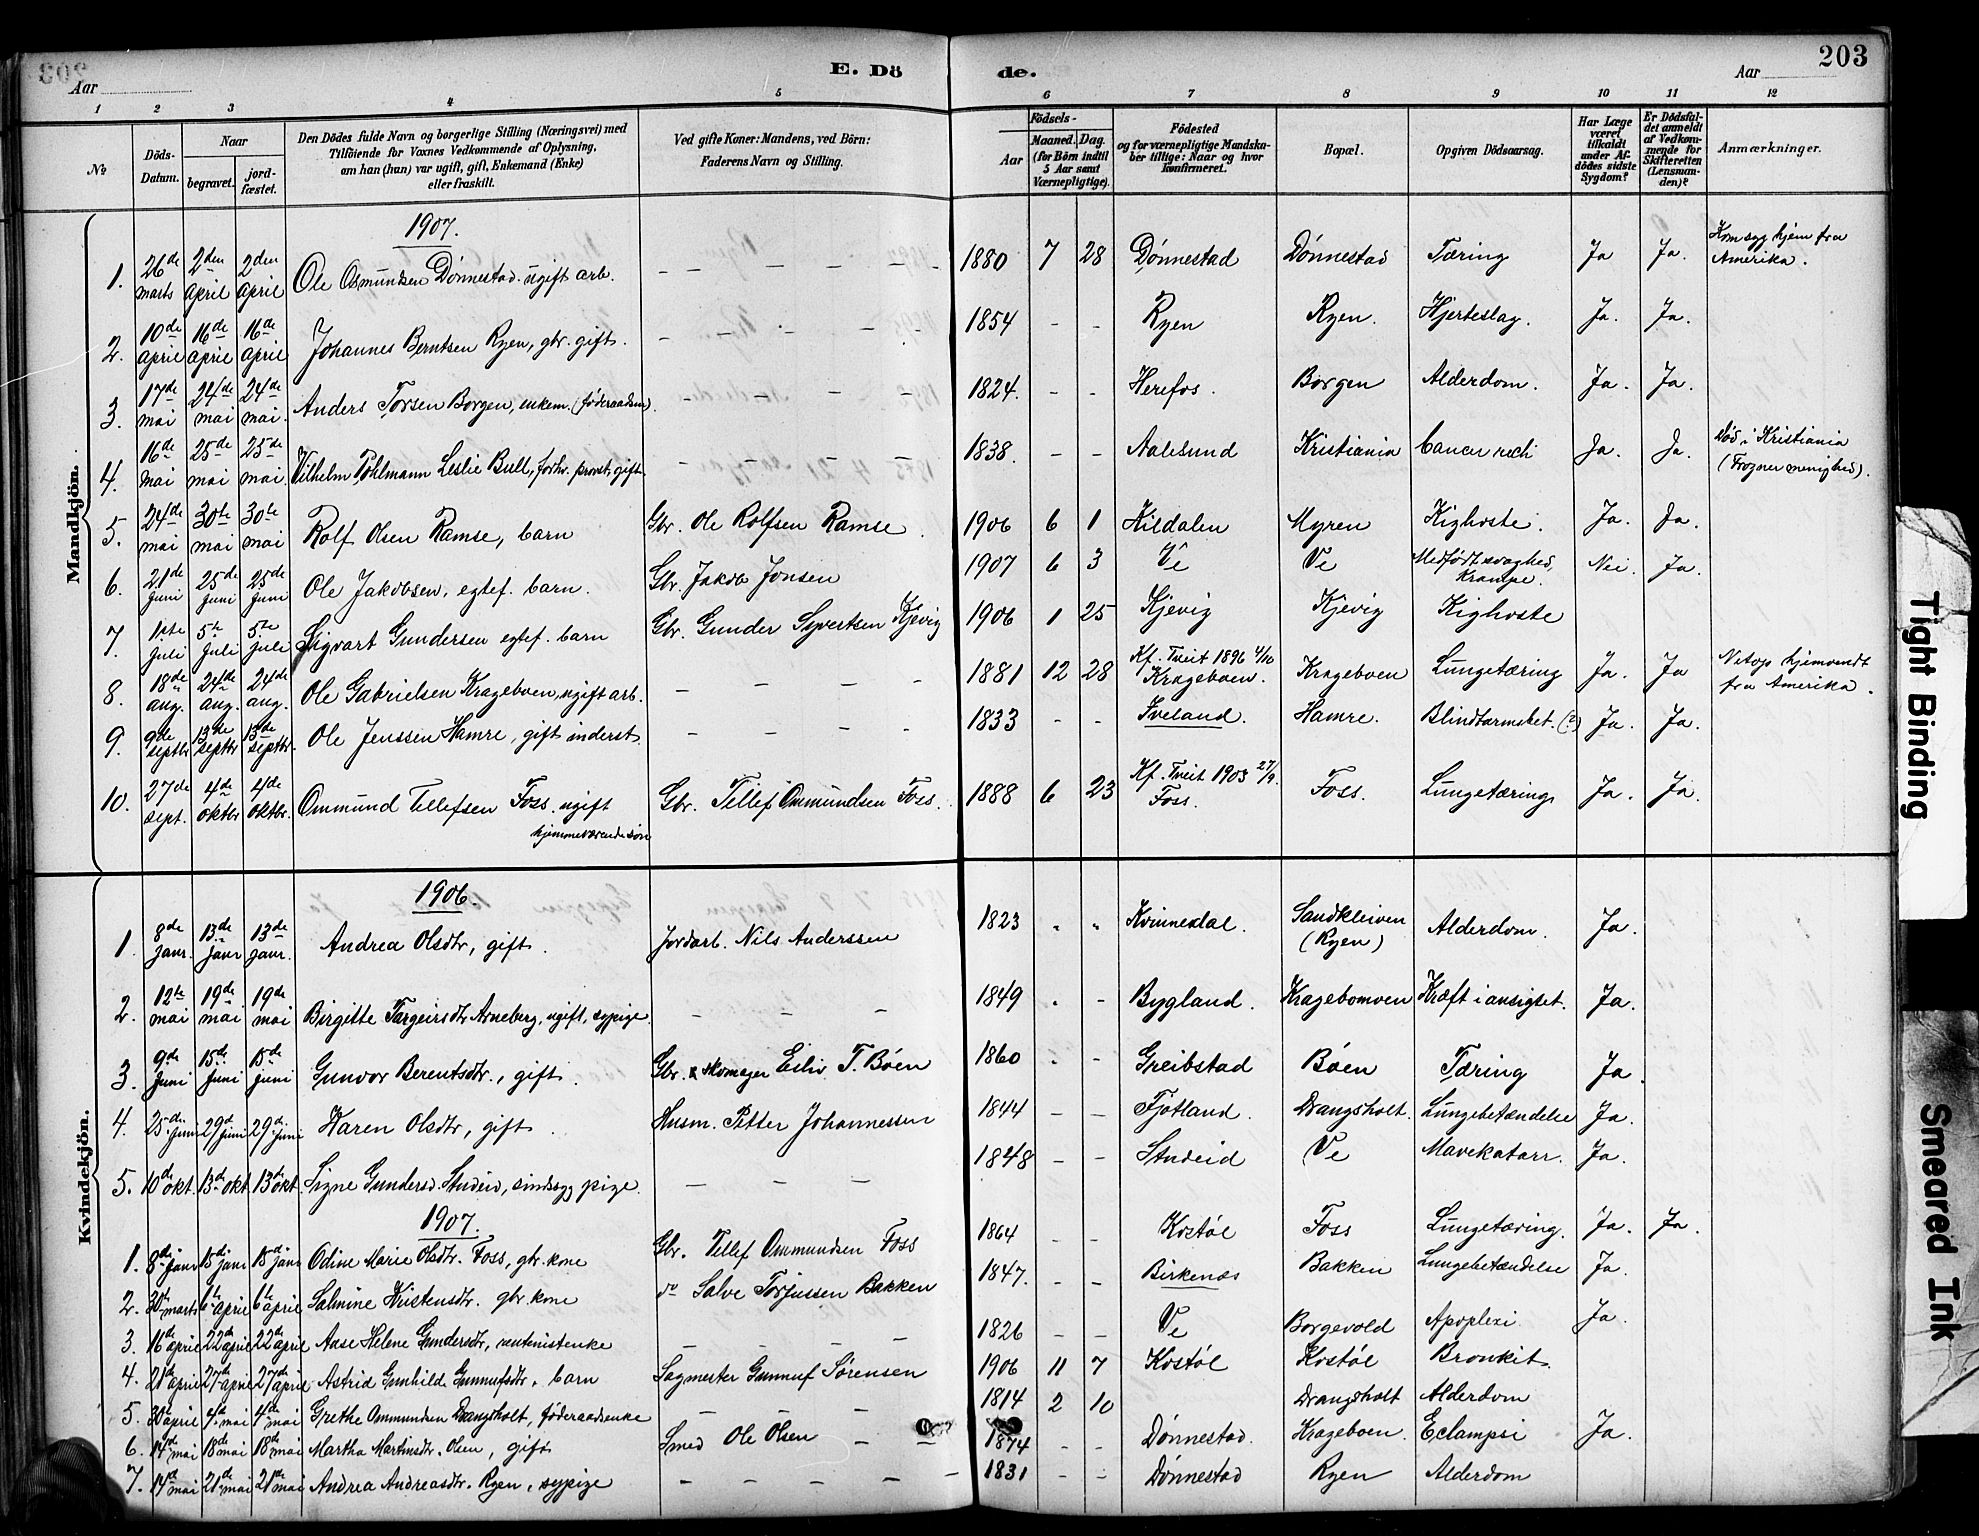 203
Aar
E. Dö
de.
Aar
1 2 3 4 5 6 7 8 9 10 11 12
No
Döds-Datum.
Naar
begravet.
jord-fæstet.
Den Dödes fulde Navn og borgerlige Stilling (Næringsvei) med
Tilföiende for Voxnes Vedkommende af Oplysning,
om han (hun) var ugift, gift, Enkemand (Enke)
eller fraskilt.
Ved gifte Koner: Mandens, ved Börn:
Faderens Navn og Stilling.
Födsels-
Aar
Maaned. Dag.
(for Börn indtil
5 Aar samt
Værnepligtige).
Födested
og for værnepligtige Mandska-
ber tillige: Naar og hvor
konfirmeret.
Bopæl.
Opgiven Dödsaarsag.
Har Læge
været
tilkaldt
under Af-
dödes sidste
Sygdom?
Er Dödsfal-
det anmeldt
af Vedkom-
mende for
Skifteretten
(Lensman-
den)?
Anmærkninger.
Mandkjön.
1907.
1. 26de marts 2den april 2den april Ole Osmundsen Dønnestad. ugift arb. – – – – – – 1880 7 28 Dønnestad Dønnestad Tæring Ja Ja. Kom syg hjem fra Amerika.
2. 10de april 16de april 16de april Johannes Berntsen Ryen, gbr. gift. – – – – – 1854 - - Ryen Ryen. Hjerteslag. Ja. Ja.
3. 17de mai 24de mai 24de mai. Anders Torsen Borgen, enkem. (föderaadsm). – – – – – 1824. - - Herefos. Borgen Alderdom. Ja. Ja.
4. 16de mai 25de mai 25de mai. Vilhelm Pohlmann Leslie Bull, forhv. provst, gift – – – – – 1838. - - Aalesund Kristiania Cancer recti Ja. Ja. Død i Kristiania (Frogner menighed).
5. 24de mai 30te mai 30te mai Rolf Olsen Ramse, barn Gbr. Ole Rolfsen Ramse. 1906 6 1 Kildalen Myren Kighoste. Ja. Ja.
6. 21de juni 25de juni 25de juni Ole Jakobsen, egtef. barn. Gbr. Jakob Jonsen 1907 6 3 Ve Ve Medfödt svaghed, Krampe. Nei. Ja.
7. 1ste juli 5te juli 5te juli Sigvart Gundersen egtef. barn Gbr. Gunder Syvertsen Kjevig 1906 1 25 Kjevig Kjevig Kighoste
8. 18de aug. 24de aug. 24de aug. Ole Gabrielsen Krageboen, ugift arb. – – – – 1881 12 28 Kf. Tveit 1896 4/10 Krageboen. Krageboen Lungetæring Ja. Ja Netop hjemvendt fra Amerika.
9. 9de septbr 13de septbr 13de septbr. Ole Jenssen Hamre, gift inderst. – – – – 1833 - - Iveland. Hamre. Blindtarmsbet. (?) Ja. Ja.
10. 27de sept. 4de oktbr 4de oktbr. Ommund Tellefsen Foss. ugift hjemmeværende søn Gbr. Tellef Ommundsen Foss. 1888 6 23 Kf. Tveit 1903 27/9. Foss. Foss. Lungetæring Ja. Ja.
Kvindekjön.
1906
1. 8de janr. 13de janr 13de janr. Andrea Olsdtr, gift. Jordarb. Nils Anderssen 1823 " " Kvinnesdal. Sandkleiven (Ryen) Alderdom. Ja.
2. 12te mai 19de mai 19de mai Birgitte Targeirsdtr Arneberg, ugift, sypige. – – – 1849 " - Bygland. Kragebomoen Kræft i ansigtet. Ja.
3. 9de juni 15de juni 15de juni Gunvor Berentsdtr., gift. Gbr. & skomager Eiliv T. Böen 1860 " - Greibstad Böen Tæring Ja.
4. 25de juni 29de juni 29de juni Karen Olsdtr, gift. Husm. Petter Johannessen 1844 - - Fjotland. Drangsholt. Lungebetændelse Ja.
5. 10de okt. 13de okt 13de okt. Signe Gundersd. Studeid, sindssyg pige. – – – 1848 - - Studeid Ve Mavekatarr. Ja.
1907.
1. 8de janr 15de janr 15de janr Odine Marie Olsdtr. Foss, gbr. kone Gbr. Tellef Ommundsen Foss 1864 - - Kostøl Foss Lungetæring. Ja. Ja.
2. 30te marts 6te april 6te april Salmine Kristensdtr. gbr. kone do Salve Torjussen Bakken 1847. - - Birkenæs Bakken Lungebetændelse Ja.
3. 16de april 22de april 22de april Aase Helene Gundersdtr, rentenistenke – – – – 1826 - - Ve Borgevold Apoplexi. Ja.
4. 21de april 27de april 27de april Astrid Gunhilde Gunnufsdtr. barn Sagmester Gunnuf Sörensen 1906 11 7 Kostøl Kostøl Bronkit.
5. 30te april 4de mai 4de mai Grethe Ommundsen Drangsholt, föderaadsenke – – – – 1814 2 10 Drangsholt Alderdom
6. 14de mai 18de mai 18de mai Martha Martinsdtr. Olsen, gift Smed Ole Olsen – – 1874 - - Dönnestad. Krageboen. Eclampsi Ja.
7. 14de mai 21de mai 21de mai Andrea Andreasdtr. Ryen, sypige – – – – – 1831 - - Dönnestad Ryen Alderdom
Tight Binding
Smeared Ink